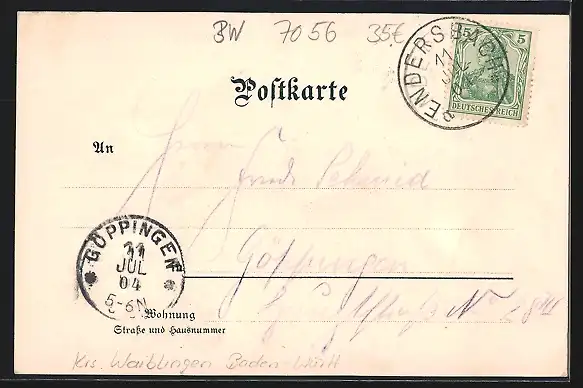 BW 7056 35€
ENDERSBACH
11
5 5
DEUTSCHES REICH
Postkarte
An Herrn
Schmid
GÖPPINGEN
11
JUL
04
5-6N
Göppingen
Wohnung
Straße und Hausnummer
Krs. Waiblingen Baden-Württ